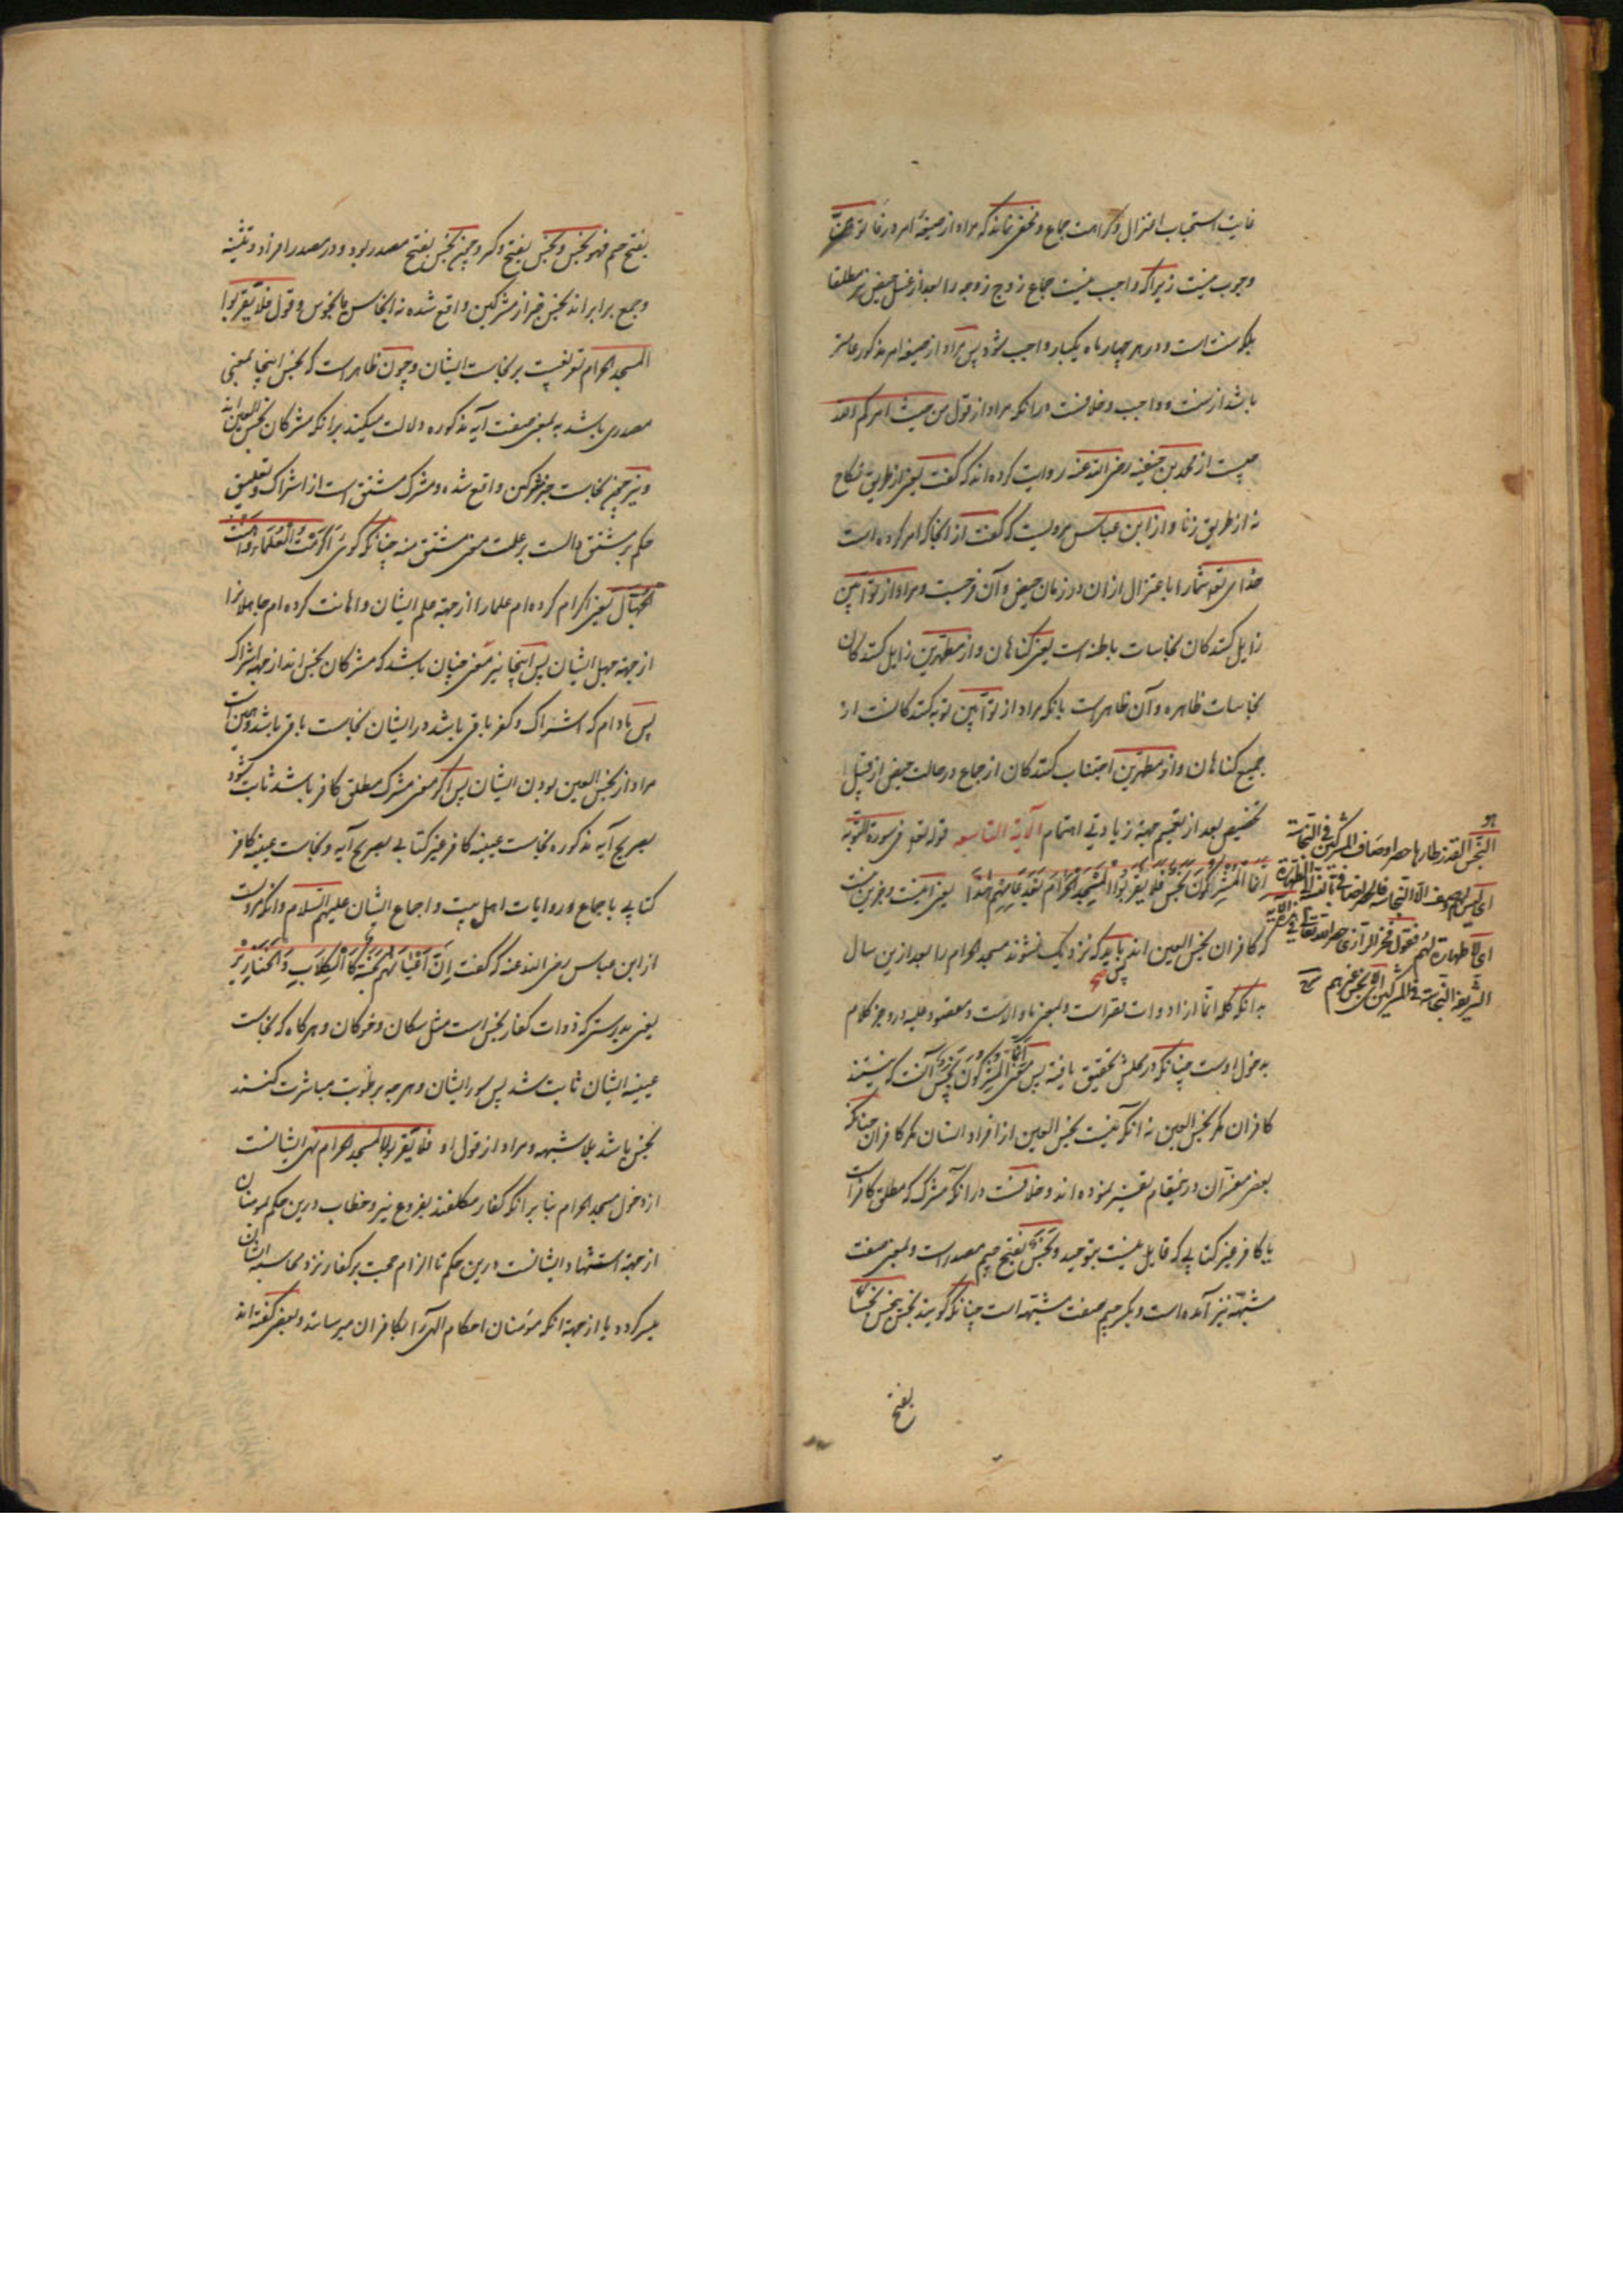 غایت استحباب اعتزال و کراهت جماع و مخفی نماند که مراد از صیغهٔ امر در فأتوهن
وجوب نیست زیرا که واجب نیست جماع زوج زوجه را بعد از غسل حیض نیز مطلقا
بلکه سنت است و در هر چهار ماه یکبار واجب شود پس مراد از صیغه امر مذکور عامتر
باشد از سنت و واجب و خلافست در انکه مراد از قول من حیث امرکم الله
چیست از محمد بن حنفیه رضی الله عنه روایت کرده اند که گفت یعنی از طریق نکاح
نه از طریق زنا و از ابن عباس مرویست که گفت از انجا که امر کرده است
خدای تع شما را باعتزال ازان در زمان حیض و آن فرجست و مراد از توابین
زایل کنندگان نجاسات باطنه است یعنی گناهان و از متطهرین زایل کنندگان
نجاسات ظاهره و آن ظاهر است یا انکه مراد از توابین توبه کنندگانست از
جمیع گناهان و از متطهرین اجتناب کنندگان از جماع در حالت حیض از قبیل
تخصیص بعد از تعمیم جهة زیادتی اهتمام الآیة التاسعه قوله تع فی سورة التوبه
انما المشرکون نجس فلا یقربوا المسجد الحرام بعد عامهم هذا یعنی اینست و جز این نیست
که کافران نجس العین اند پس باید که نزدیک نشوند مسجد الحرام را بعد ازین سال
بدانکه کلمه انما از ادوات قصر است و بمعنی ما و الاست و مقصور علیه در وجز کلام
مدخول اوست چنانکه در محلش تحقیق یافته پس معنی انما المشرکون نجس آنست که نیستند
کافران مگر نجس العین نه انکه نیست نجس العین از افراد انسان مگر کافران چنانکه
بعضی مفسران درینمقام تفسیر نموده اند و خلافست در انکه مشرک که مطلق کافر است
یا کافر غیر کتابی که قایل نیست بتوحید و نجس بفتح جیم مصدر است و بمعنی صفت
مشبهه نیز آمده است و بکسر جیم صفت مشبهه است چنانکه گویند نجس ینجس نجسا
بفتح
النجس القذر
ای لیس لهم وصف الا النجاسة
ای لا طهارة لهم فقول فخر الرازی حصر الله تعالی فی هذه الآیة
الشریفة النجاسة فی المشرکین ای لا نجس غیرهم
بفتح جیم فهو نجس و نجس بفتح و کسر و چون نجس بفتح مصدر بود و در مصدر افراد و تثنیه
و جمع برابراند نجس خبر از مشرکین واقع شده نه انجاس یا نجوس و قول فلا یقربوا
المسجد الحرام تفریعست بر نجاست ایشان و چون ظاهر است که نجس اینجا بمعنی
مصدری باشد نه بمعنی صفت آیه مذکوره دلالت میکند برانکه مشرکان نجس العین اند
و نیز چون نجاست خبر مشرکین واقع شده و مشرک مشتق است از اشراک و تعلیق
حکم بر مشتق دالست بر علت معنی مشتق منه چنانکه گوی اکرمت العلماء و اهنت
الجهال یعنی اکرام کرده ام علما را از جهة علم ایشان و اهانت کرده ام جاهلانرا
از جهة جهل ایشان پس اینجا نیز معنی چنان باشد که مشرکان نجس اند از جهة اشراک
پس مادام که اشراک و کفر باقی باشد در ایشان نجاست باقی باشد و همین است
مراد از نجس العین بودن ایشان پس اگر معنی مشرک مطلق کافر باشد ثابت شود
بصریح آیه مذکوره نجاست عینیه کافر غیر کتابی بصریح آیه و نجاست عینیه کافر
کتابی باجماع و روایات اهل بیت و اجماع ایشان علیهم السلام و انکه مرویست
از ابن عباس رضی الله عنه که گفت ان اعیانهم نجسة کالکلاب و الخنازیر
یعنی بدرستی که ذوات کفار نجس است مثل سکان و خوکان و هرگاه که نجاست
عینیه ایشان ثابت شد پس سور ایشان و هر چه برطوبت مباشرت کنند
نجس باشد بلا شبهه و مراد از قول او فلا یقربوا المسجد الحرام نهی ایشانست
از دخول مسجد الحرام بنا برانکه کفار مکلفند بفروع نیز و خطاب درین حکم بمومنان
از جهة استشهاد ایشانست درین حکم تا الزام حجت بر کفار نزد محاسبه ایشان
میسر گردد یا از جهة انکه مؤمنان احکام الهی را بکافران میرسانند و بعضی گفته اند